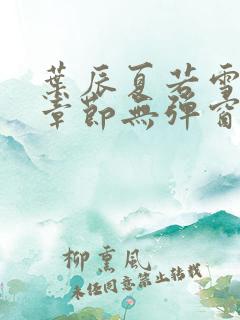 葉辰夏若雪
章節無彈窗
柳熏風
未經同意禁止轉載